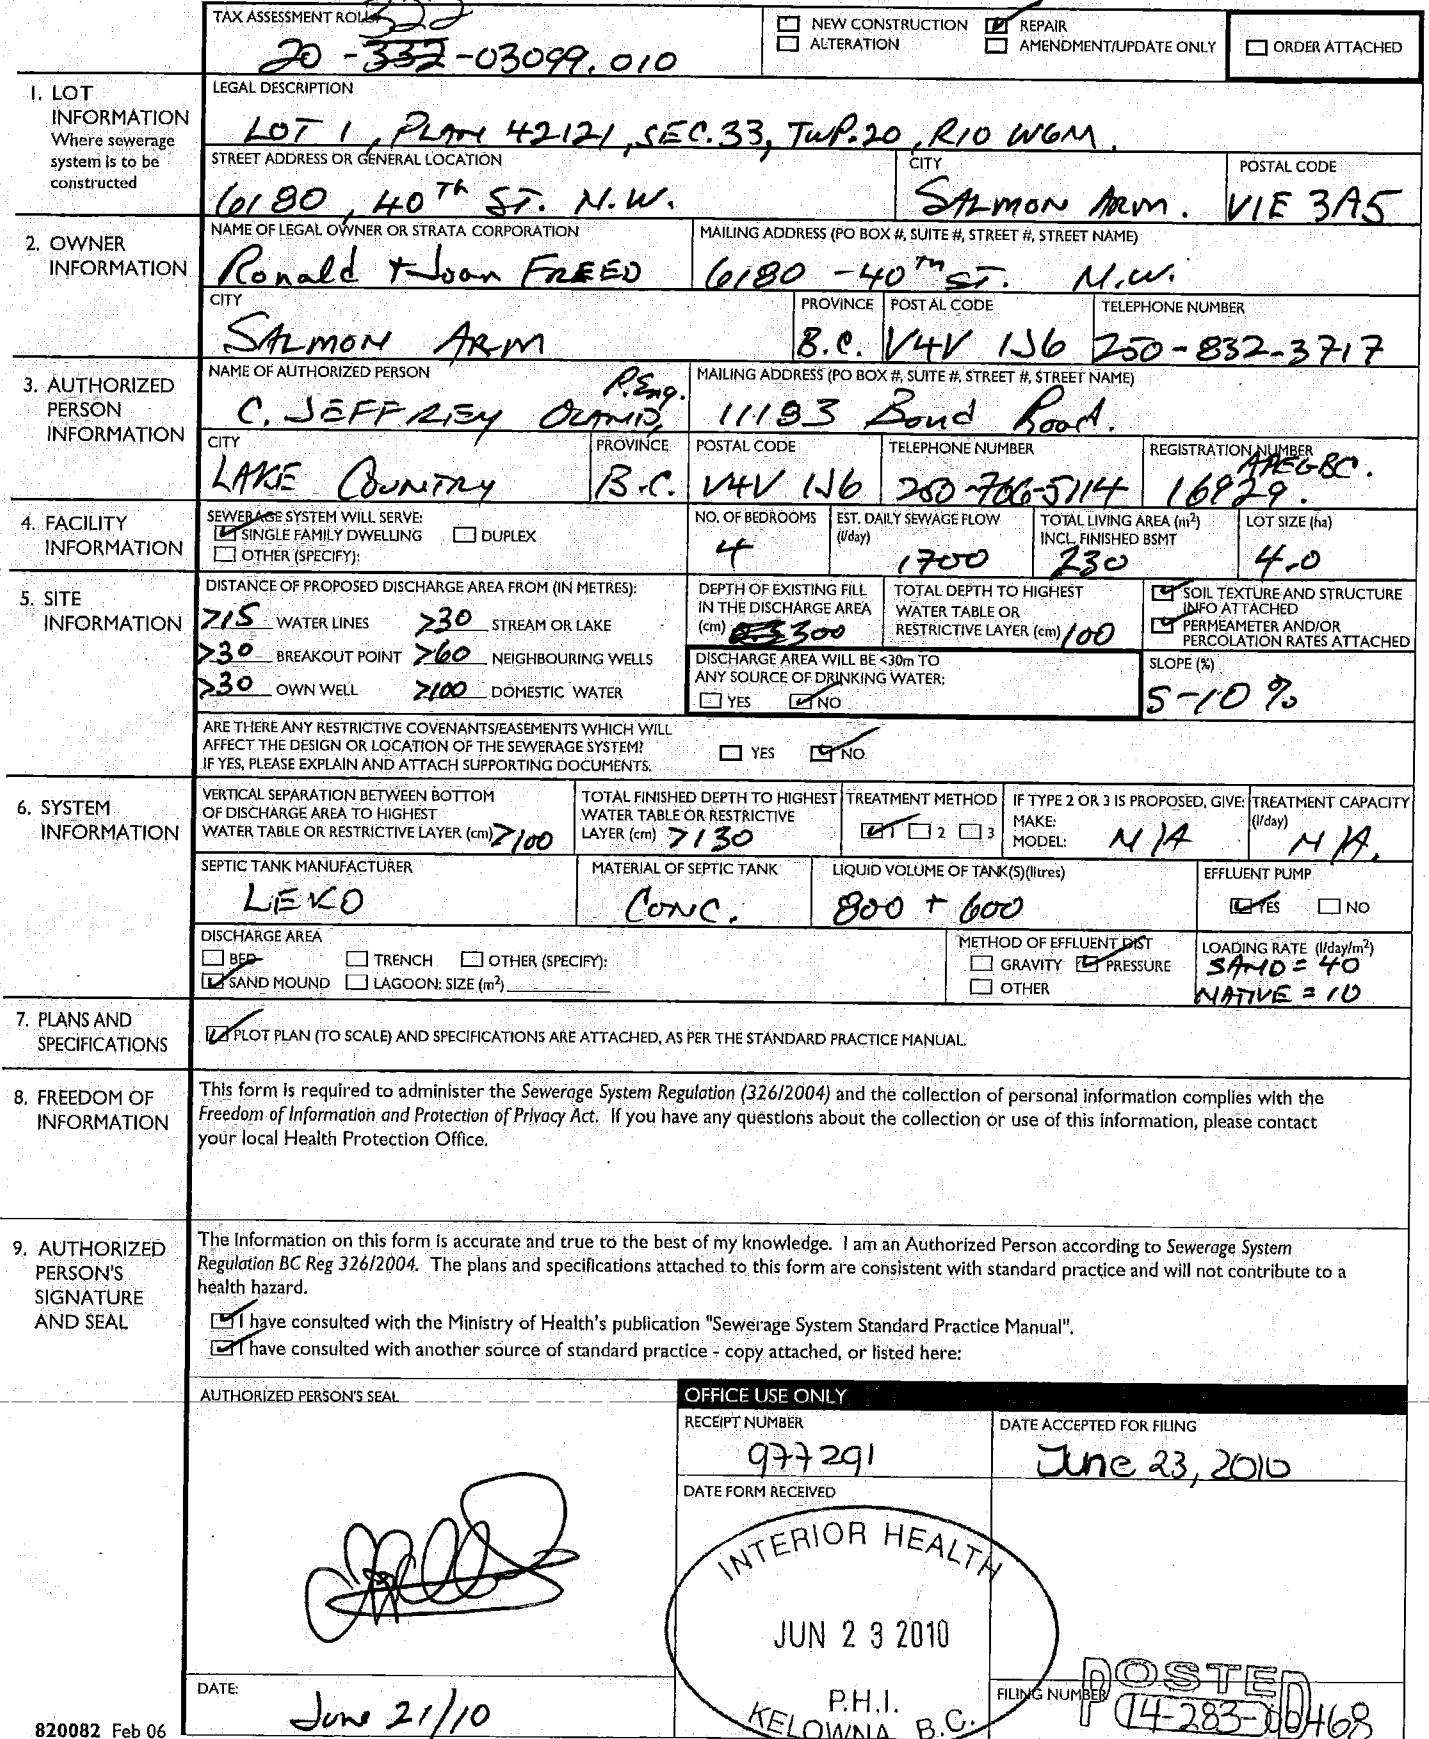 TAX ASSESSMENT ROLL#
322
20-332-03099.010
NEW CONSTRUCTION REPAIR
ALTERATION AMENDMENT/UPDATE ONLY
ORDER ATTACHED
1. LOT INFORMATION
Where sewerage system is to be constructed
LEGAL DESCRIPTION
LOT 1, PLAN 42121, SEC.33, TWP.20, R10 W6M.
STREET ADDRESS OR GENERAL LOCATION CITY POSTAL CODE
6180, 40TH ST. N.W. SALMON ARM. V1E 3A5
2. OWNER INFORMATION
NAME OF LEGAL OWNER OR STRATA CORPORATION MAILING ADDRESS (PO BOX #, SUITE #, STREET #, STREET NAME)
Ronald + Joan FREED 6180 - 40TH ST. N.W.
CITY PROVINCE POSTAL CODE TELEPHONE NUMBER
SALMON ARM B.C. V4V 1J6 250-832-3717
3. AUTHORIZED PERSON INFORMATION
NAME OF AUTHORIZED PERSON MAILING ADDRESS (PO BOX #, SUITE #, STREET #, STREET NAME)
C. JEFFREY OLAND, P.Eng. 11183 Bond Road.
CITY PROVINCE POSTAL CODE TELEPHONE NUMBER REGISTRATION NUMBER
LAKE COUNTRY B.C. V4V 1J6 250-766-5114 APEGBC. 16929.
4. FACILITY INFORMATION
SEWERAGE SYSTEM WILL SERVE:
SINGLE FAMILY DWELLING DUPLEX
OTHER (SPECIFY):
NO. OF BEDROOMS
4
EST. DAILY SEWAGE FLOW (l/day)
1700
TOTAL LIVING AREA (m²) INCL. FINISHED BSMT
230
LOT SIZE (ha)
4.0
5. SITE INFORMATION
DISTANCE OF PROPOSED DISCHARGE AREA FROM (IN METRES):
>15 WATER LINES >30 STREAM OR LAKE
>30 BREAKOUT POINT >60 NEIGHBOURING WELLS
>30 OWN WELL >100 DOMESTIC WATER
DEPTH OF EXISTING FILL IN THE DISCHARGE AREA (cm) 300
TOTAL DEPTH TO HIGHEST WATER TABLE OR RESTRICTIVE LAYER (cm) 100
SOIL TEXTURE AND STRUCTURE INFO ATTACHED
PERMEAMETER AND/OR PERCOLATION RATES ATTACHED
DISCHARGE AREA WILL BE <30m TO ANY SOURCE OF DRINKING WATER:
YES NO
SLOPE (%)
5-10 %
ARE THERE ANY RESTRICTIVE COVENANTS/EASEMENTS WHICH WILL
AFFECT THE DESIGN OR LOCATION OF THE SEWERAGE SYSTEM?
IF YES, PLEASE EXPLAIN AND ATTACH SUPPORTING DOCUMENTS.
YES NO
6. SYSTEM INFORMATION
VERTICAL SEPARATION BETWEEN BOTTOM OF DISCHARGE AREA TO HIGHEST WATER TABLE OR RESTRICTIVE LAYER (cm) >100
TOTAL FINISHED DEPTH TO HIGHEST WATER TABLE OR RESTRICTIVE LAYER (cm) >130
TREATMENT METHOD
1 2 3
IF TYPE 2 OR 3 IS PROPOSED, GIVE:
MAKE:
MODEL: N/A
TREATMENT CAPACITY (l/day)
N/A.
SEPTIC TANK MANUFACTURER MATERIAL OF SEPTIC TANK LIQUID VOLUME OF TANK(S)(litres) EFFLUENT PUMP
LEKO CONC. 800 + 600 YES NO
DISCHARGE AREA
BED TRENCH OTHER (SPECIFY):
SAND MOUND LAGOON: SIZE (m²)
METHOD OF EFFLUENT DIST
GRAVITY PRESSURE
OTHER
LOADING RATE (l/day/m²)
SAND = 40
NATIVE = 10
7. PLANS AND SPECIFICATIONS
PLOT PLAN (TO SCALE) AND SPECIFICATIONS ARE ATTACHED, AS PER THE STANDARD PRACTICE MANUAL.
8. FREEDOM OF INFORMATION
This form is required to administer the Sewerage System Regulation (326/2004) and the collection of personal information complies with the
Freedom of Information and Protection of Privacy Act. If you have any questions about the collection or use of this information, please contact
your local Health Protection Office.
9. AUTHORIZED PERSON'S SIGNATURE AND SEAL
The Information on this form is accurate and true to the best of my knowledge. I am an Authorized Person according to Sewerage System
Regulation BC Reg 326/2004. The plans and specifications attached to this form are consistent with standard practice and will not contribute to a
health hazard.
I have consulted with the Ministry of Health's publication "Sewerage System Standard Practice Manual".
I have consulted with another source of standard practice - copy attached, or listed here:
AUTHORIZED PERSON'S SEAL
OFFICE USE ONLY
RECEIPT NUMBER DATE ACCEPTED FOR FILING
977291 June 23, 2010
DATE FORM RECEIVED
INTERIOR HEALTH
JUN 23 2010
P.H.I.
KELOWNA, B.C.
DATE:
June 21/10
POSTED
FILING NUMBER
14-283-00468
820082 Feb 06